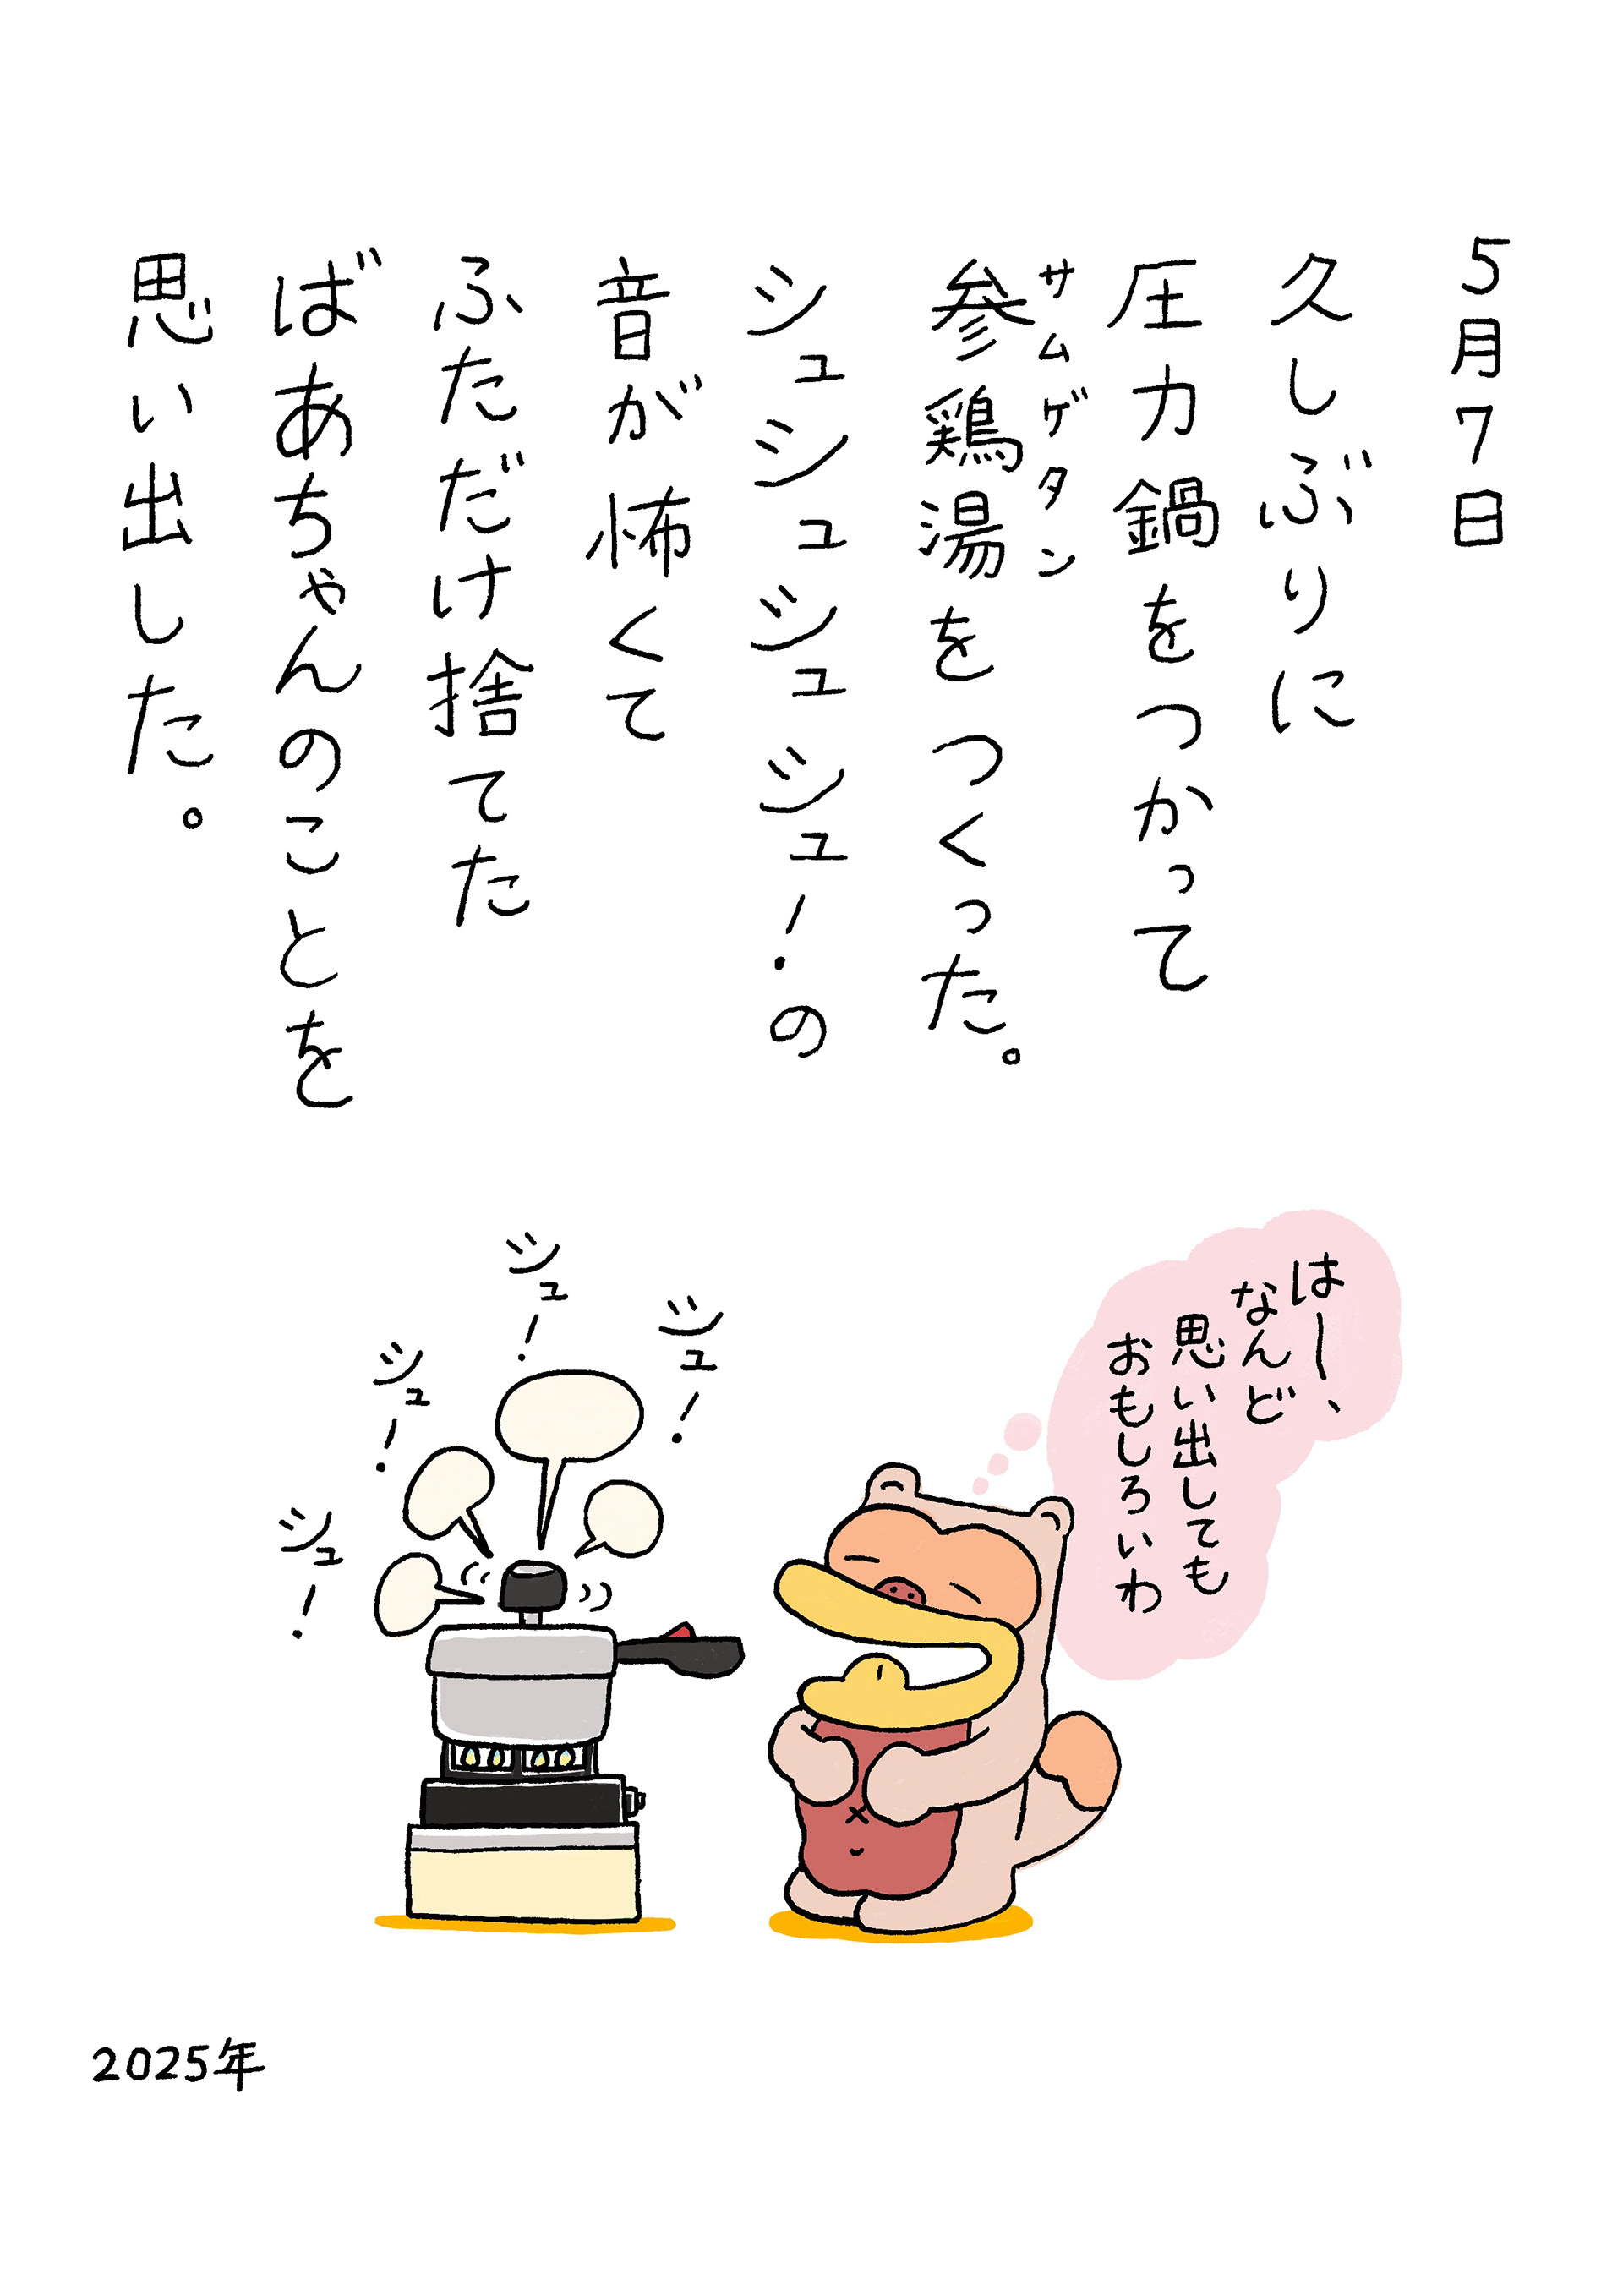 5月7日
久しぶりに
圧力鍋をつかって
参鶏湯をつくった。
サムゲタン
シュシュシュシュ!の
音が怖くて
ふただけ捨てた
ばあちゃんのことを
思い出した。
はー、
なんど
思い出しても
おもしろいわ
シュ!
シュ!
シュ!
シュ!
2025年